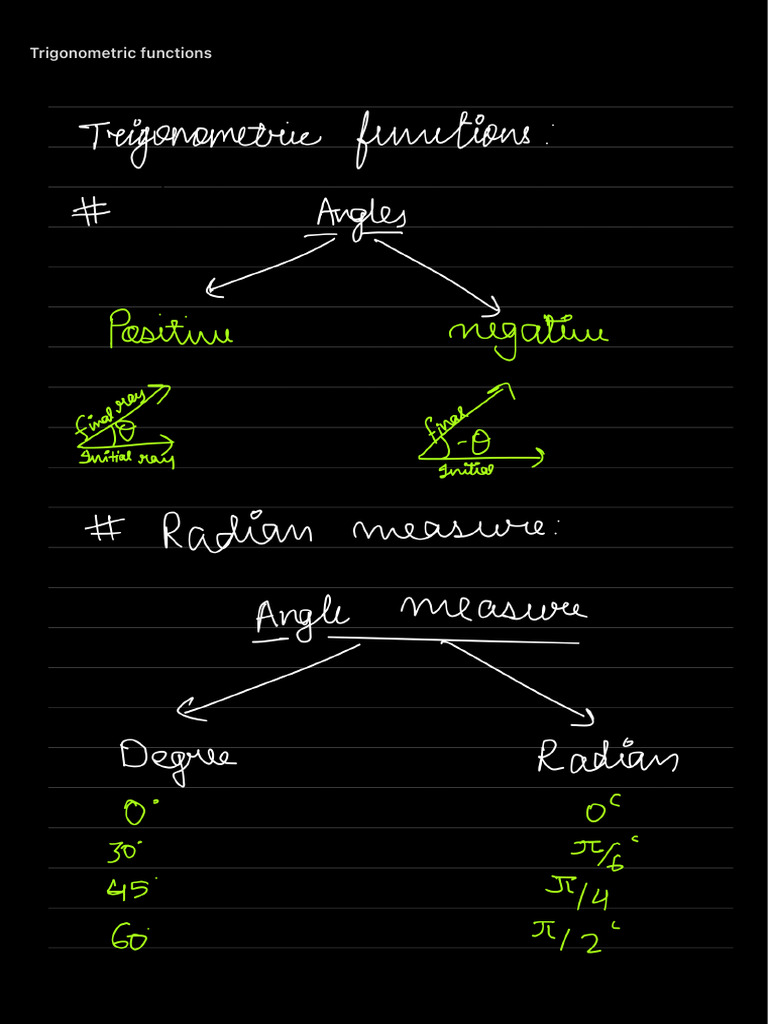 Trigonometric functions
Trigonometric functions:
# Angles
Positive negative
final ray final
θ -θ
Initial ray Initial
# Radian measure:
Angle measure
Degree Radian
0° 0ᶜ
30° π/6ᶜ
45° π/4
60° π/2ᶜ